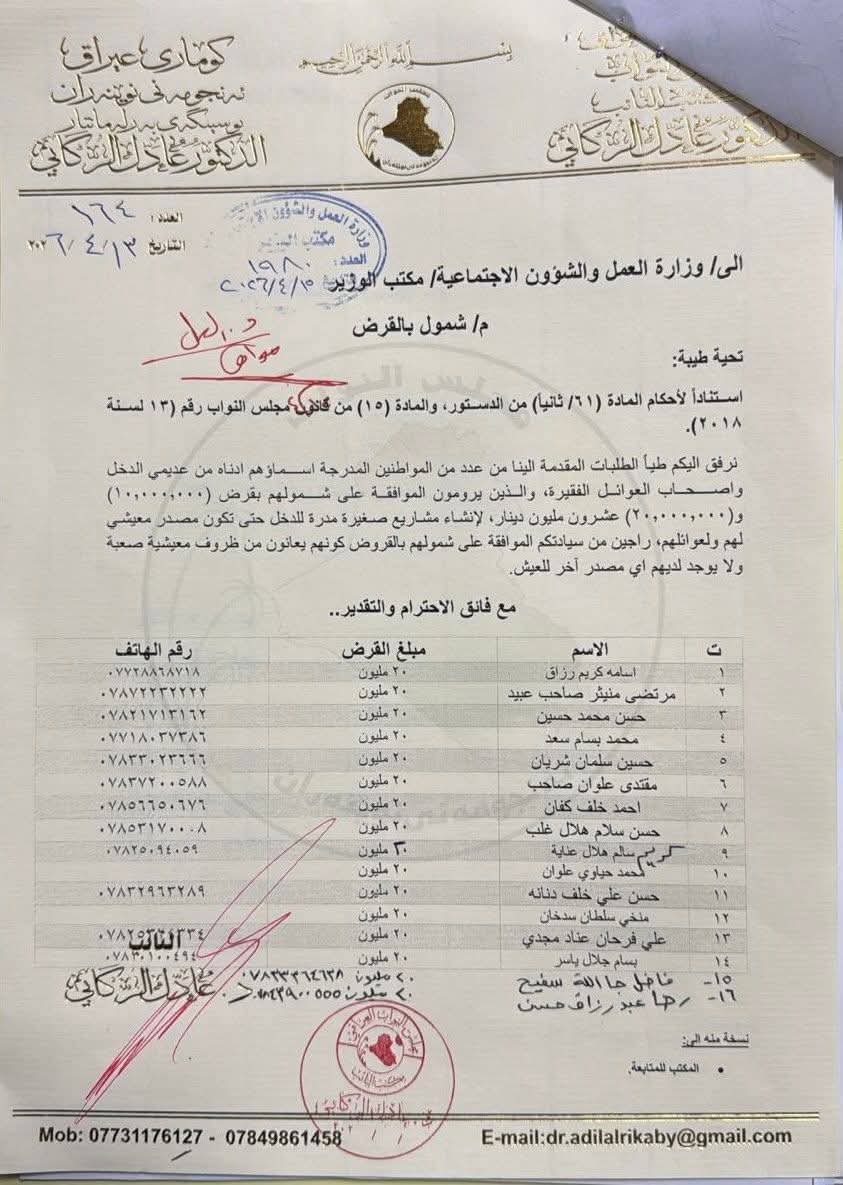 بسم الله الرحمن الرحيم
كۆماری عیراق
ئەنجومەنی نوێنەران
نوسینگەی پەرلەمانتار
الدكتور عادل الركابي
النائب
الدكتور عادل الركابي
العدد: ١٦٤
التاريخ ٢٠٢٦/٤/١٣
وزارة العمل والشؤون
مكتب الوزير
العدد: ١٩٨٠
٢٠٢٦/٤/١٥
الى/ وزارة العمل والشؤون الاجتماعية/ مكتب الوزير
م/ شمول بالقرض
تحية طيبة:
استناداً لأحكام المادة (٦١/ ثانياً) من الدستور، والمادة (١٥) من قانون مجلس النواب رقم (١٣ لسنة
٢٠١٨).
نرفق اليكم طياً الطلبات المقدمة الينا من عدد من المواطنين المدرجة اسماؤهم ادناه من عديمي الدخل
واصحاب العوائل الفقيرة، والذين يرومون الموافقة على شمولهم بقرض (١٠,٠٠٠,٠٠٠)
و(٢٠,٠٠٠,٠٠٠) عشرون مليون دينار، لإنشاء مشاريع صغيرة مدرة للدخل حتى تكون مصدر معيشي
لهم ولعوائلهم، راجين من سيادتكم الموافقة على شمولهم بالقروض كونهم يعانون من ظروف معيشية صعبة
ولا يوجد لديهم اي مصدر آخر للعيش.
مع فائق الاحترام والتقدير..
ت الاسم مبلغ القرض رقم الهاتف
١ اسامه كريم رزاق ٢٠ مليون ٠٧٧٢٨٨٦٨٧١٨
٢ مرتضى منيثر صاحب عبيد ٢٠ مليون ٠٧٨٧٢٢٣٢٢٢٢
٣ حسن محمد حسين ٢٠ مليون ٠٧٨٢١٧١٣١٦٢
٤ محمد بسام سعد ٢٠ مليون ٠٧٧١٨٠٣٧٣٨٦
٥ حسين سلمان شريان ٢٠ مليون ٠٧٨٣٣٠٢٣٦٦٦
٦ مقتدى علوان صاحب ٢٠ مليون ٠٧٨٣٧٢٠٠٥٨٨
٧ احمد خلف كفان ٢٠ مليون ٠٧٨٥٦٦٥٠٦٧٦
٨ حسن سلام هلال غلب ٢٠ مليون ٠٧٨٥٣١٧٠٠٠٨
٩ كريم سالم هلال عناية مليون ٠٧٨٢٥٠٩٤٠٥٩
١٠ محمد حياوي علوان ٢٠ مليون
١١ حسن علي خلف دنانه ٢٠ مليون ٠٧٨٣٢٩٦٣٢٨٩
١٢ منخي سلطان سدخان ٢٠ مليون
١٣ علي فرحان عناد مجدي ٢٠ مليون
١٤ بسام جلال ياسر ٢٠ مليون ٠٧٨٣٠١٠٠٤٩٤
١٥- فاضل جاالله سفيح ٢٠ مليون ٠٧٨٣٣٣٦٤٦٣٨
١٦- رضا عبد رزاق حسن ٢٠ مليون
النائب
عادل الركابي
مجلس النواب العراقي
مكتب النائب
نسخة منه الى:
• المكتب للمتابعة.
Mob: 07731176127 - 07849861458
E-mail:dr.adilalrikaby@gmail.com